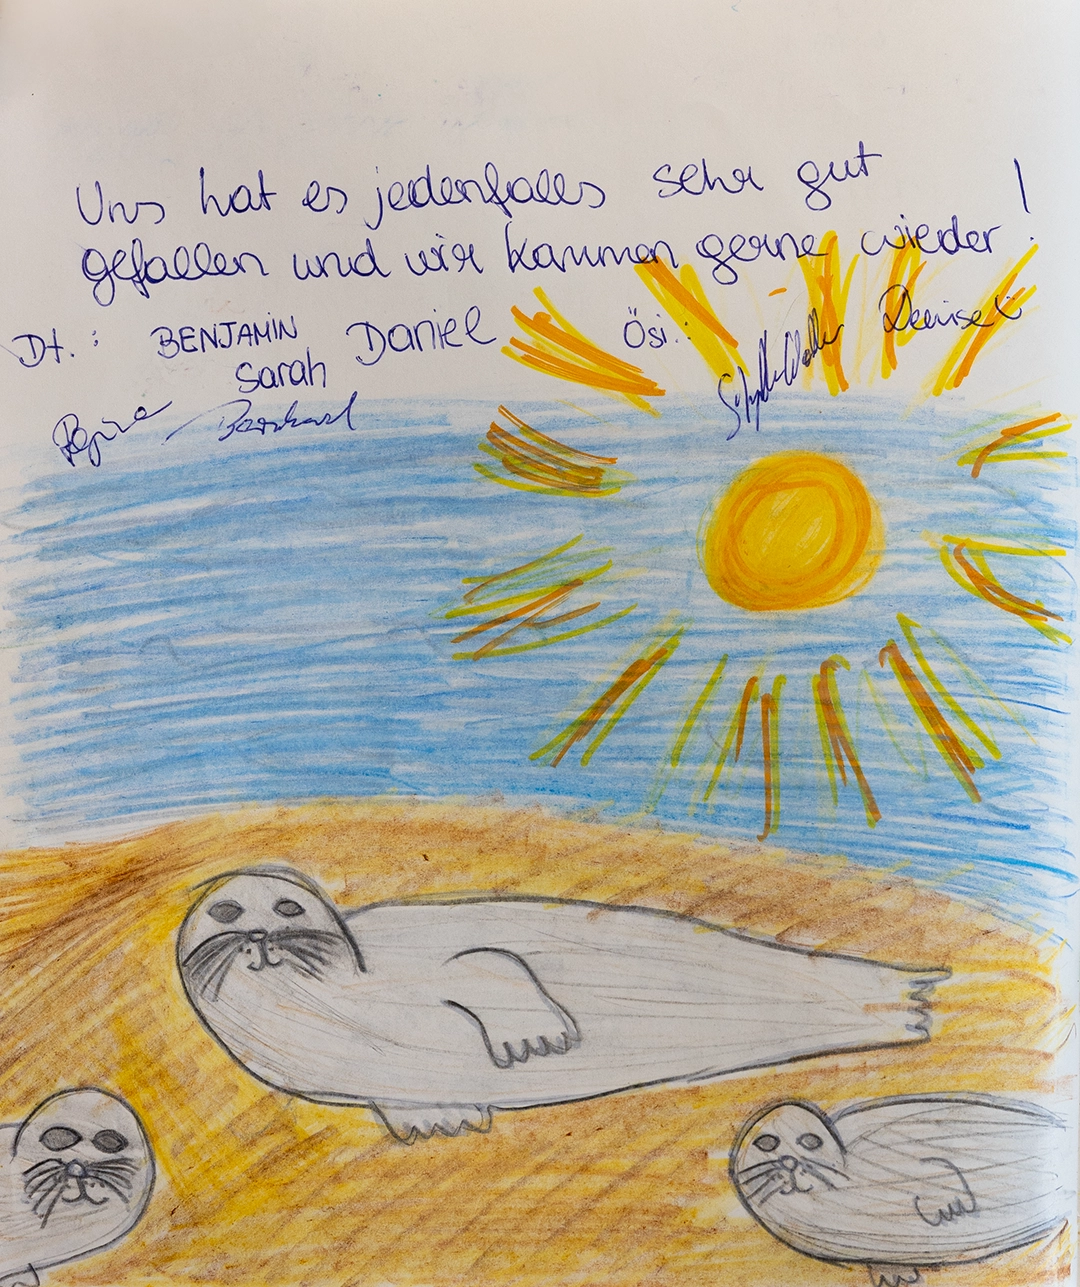 Uns hat es jedenfalls sehr gut
gefallen und wir kommen gerne wieder!
Dt.: BENJAMIN Daniel Ösi.: Denise
Sarah
Regina Bernhard